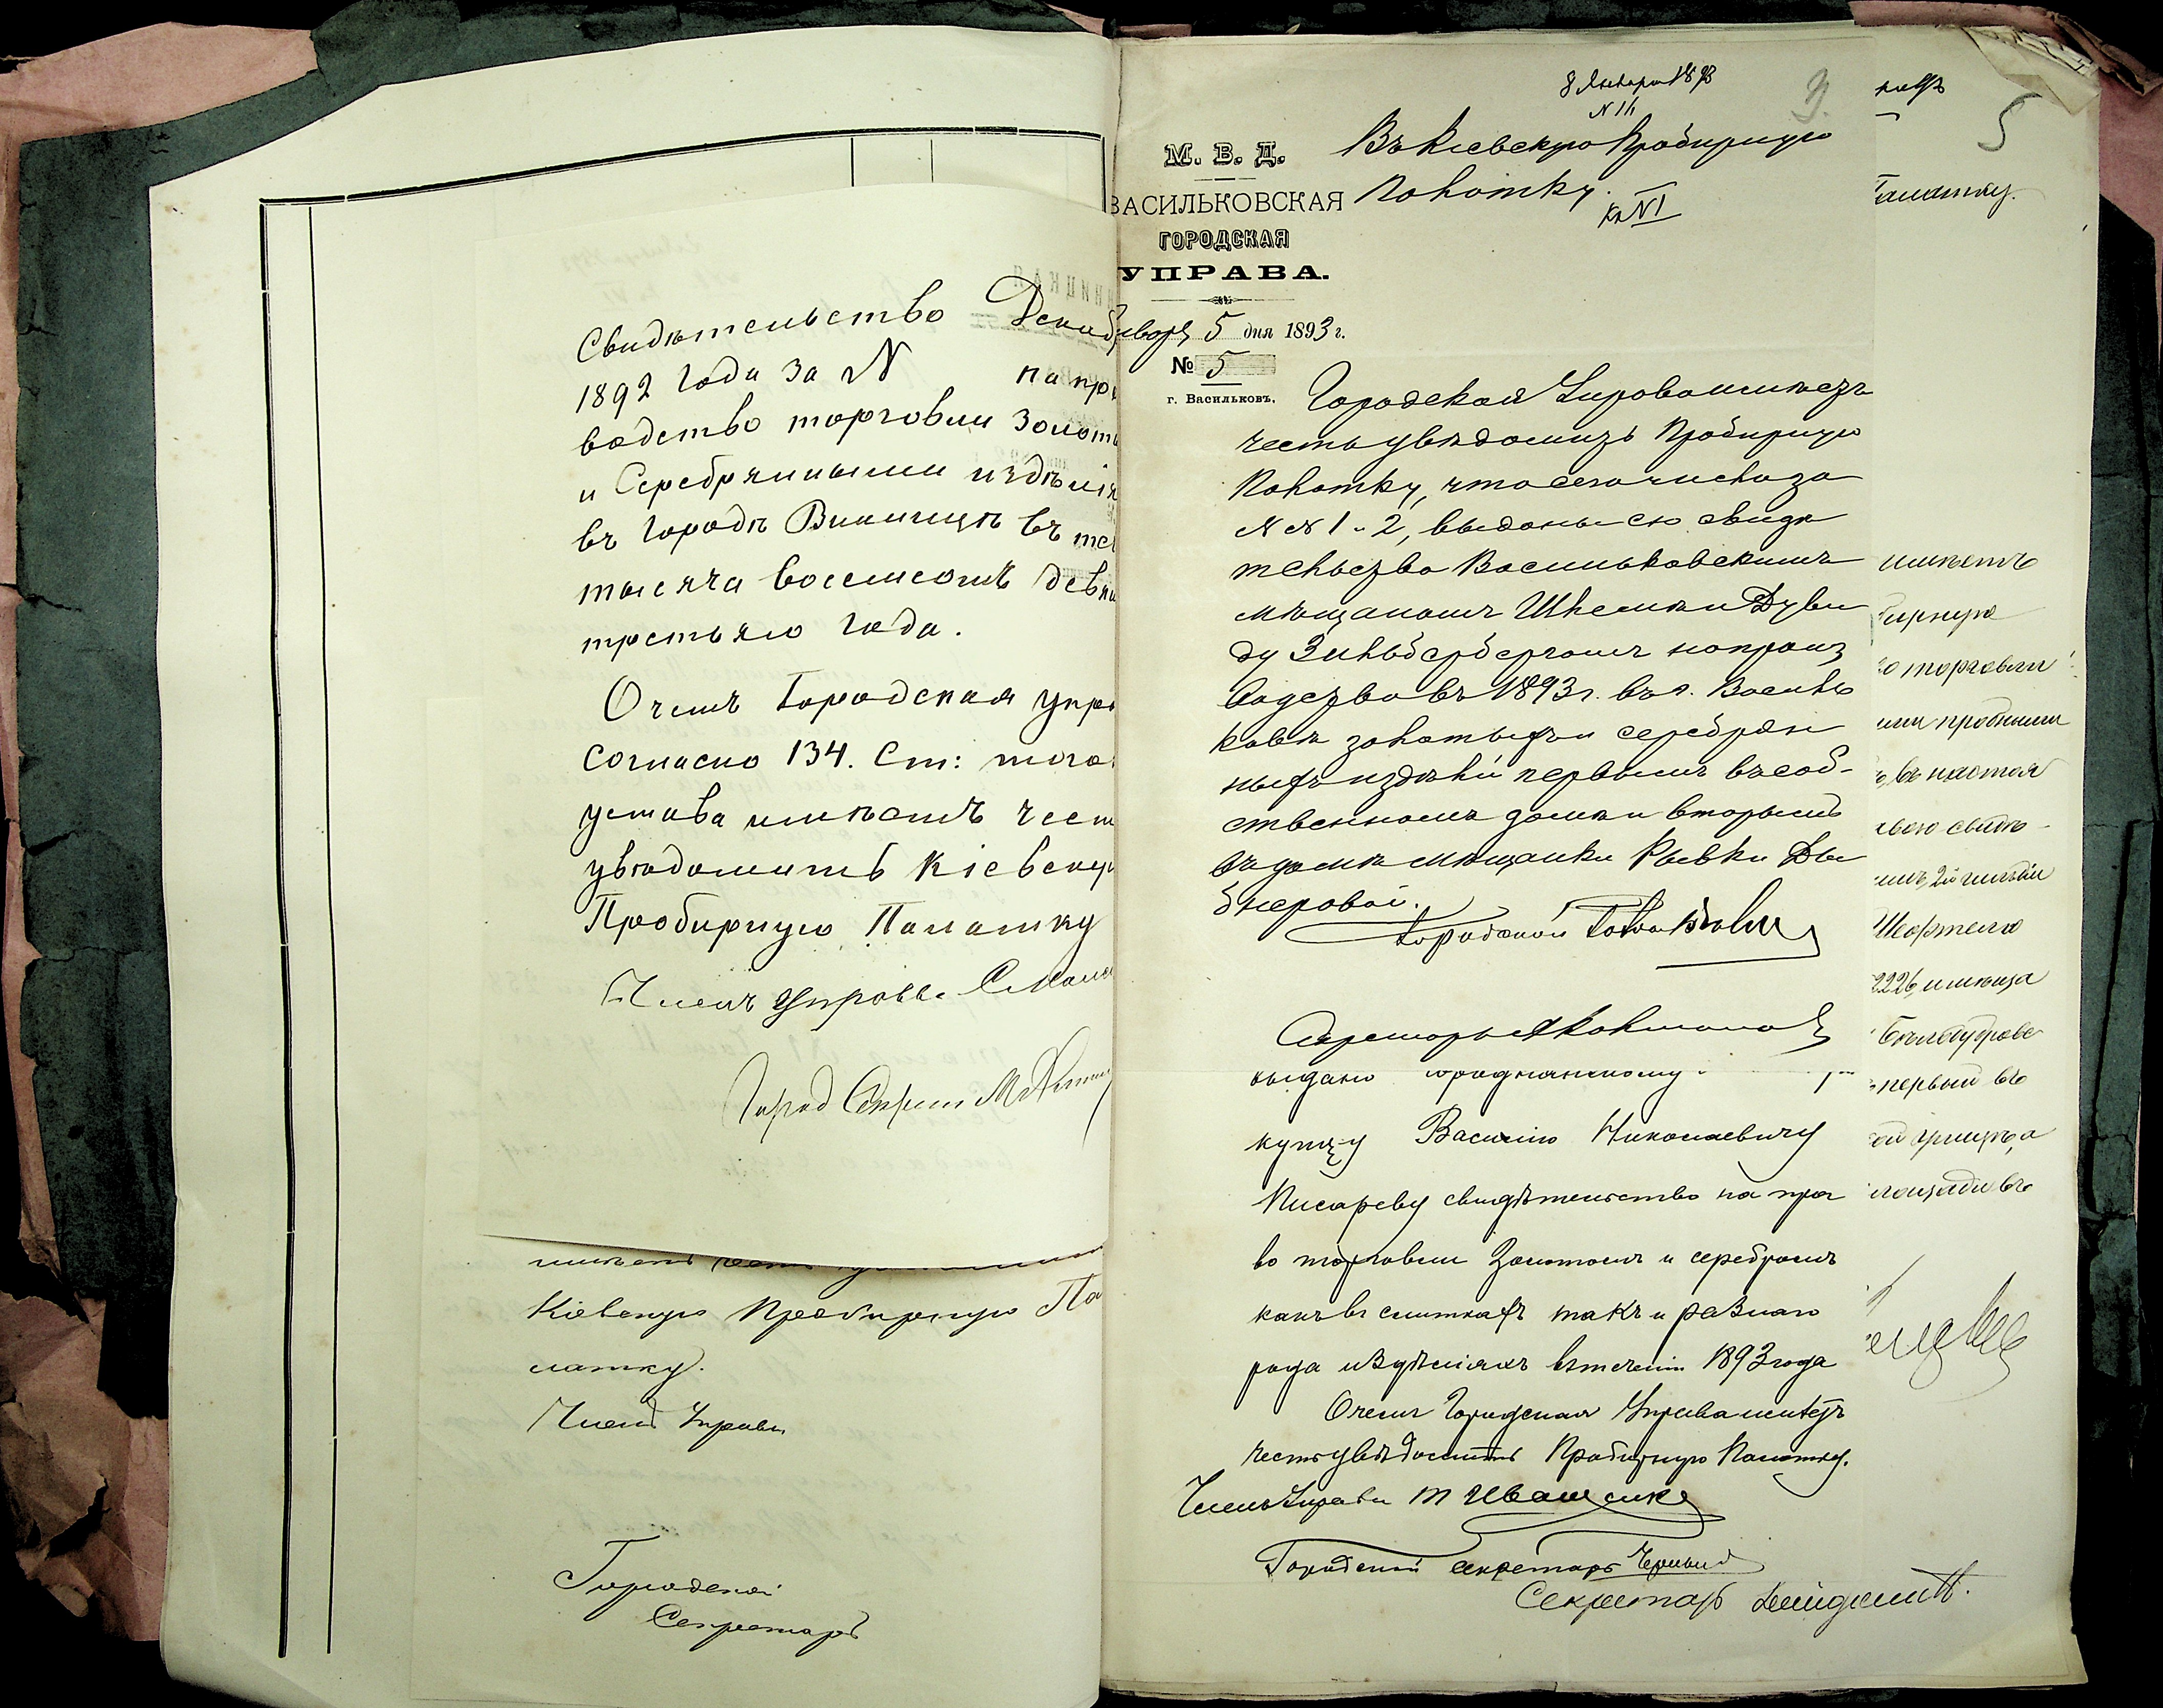 Свидѣтельство Декаб
1892 года за № на про
водство торговли золоты
и Серебряными издѣлія
въ городѣ Винницѣ въ теч
тысяча восемьсотъ девян
третьяго года.
О чемъ Городская упра
согласно 134. Ст: того
устава имѣетъ чест
увѣдомить Кіевску
Пробирную Палатку
Членъ Управы
Город Секрет
имѣетъ честь
Кіевскую Пробирную Па
латку.
Членъ Управы
Городской
Секретарь
8 Января 1893
N 14
3.
М. В. Д.
ВАСИЛЬКОВСКАЯ
ГОРОДСКАЯ
УПРАВА.
Января 5 дня 1893 г.
№ 5
г. Васильковъ.
Въ Кіевскую Пробирную
Палатку.
Кн N 1
Городская Управа имѣетъ
честь увѣдомить Пробирную
Палатку, что сего числа за
№№ 1 и 2, выданы ею свидѣ
тельства Васильковскимъ
мѣщанамъ Шлемѣ и Дуви
ду Зильбербергамъ на произ
водство въ 1893 г. въ г. Василь
ковѣ золотыхъ и серебрян
ныхъ издѣлій первымъ въ соб-
ственномъ домѣ и вторымъ
въ домѣ мѣщанки Рывки Ды
бнеровой.
Городской Голова
Секретарь
выдано
купцу Василію Николаевичу
Писареву свидѣтельство на пра
во торговли Золотомъ и серебромъ
какъ въ слиткахъ такъ и разнаго
рода издѣліяхъ въ теченіи 1893 года
О чемъ Городская Управа имѣетъ
честь увѣдомить Пробирную Палатку.
Членъ Управы М Ивашенко
Городской секретарь
Секретарь
5
палатку.
имѣетъ
бирную
о торговли
ими пробными
въ настоя
свидѣ-
2й гильдіи
2226, имѣюща
первый въ
площади въ